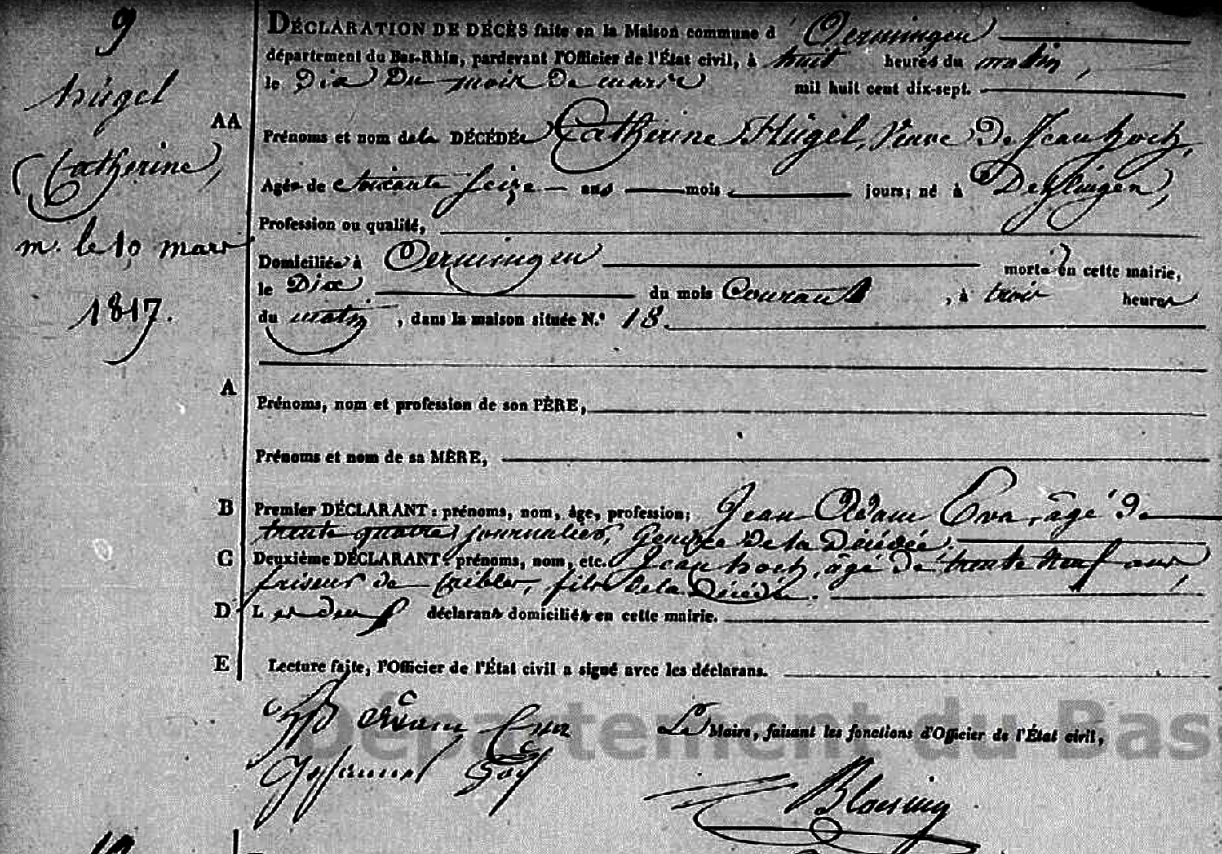 9
Húgel
Catherine,
m. le 10 mars
1817.
DÉCLARATION DE DÉCÈS faite en la Maison commune d' Oermingen
département du Bas-Rhin, pardevant l'Officier de l'État civil, à huit heures du matin,
le Dix Du mois De mars mil huit cent dix-sept.
AA
Prénoms et nom de la DÉCÉDÉe Catherine Húgel, Veuve De Jean
Agée de soixante seize ans mois jours; né à
Profession ou qualité,
Domiciliée à Oermingen morte en cette mairie,
le Dix du mois Courant, à trois heures
du matin, dans la maison située N.° 18.
A
Prénoms, nom et profession de son PÈRE,
Prénoms et nom de sa MÈRE,
B Premier DÉCLARANT : prénoms, nom, âge, profession; Jean Adam Eva, âgé de
trente quatre journalier, Gendre De la Décédée,
C Deuxième DÉCLARANT : prénoms, nom, etc. Jean âgé de trente neuf ans,
faiseur de cribles, fils De la Décédée.
D Les deux déclarans domiciliés en cette mairie.
E Lecture faite, l'Officier de l'État civil a signé avec les déclarans.
Adam Eva
Le Maire, faisant les fonctions d'Officier de l'État civil,
Département du Bas
Johannes
10